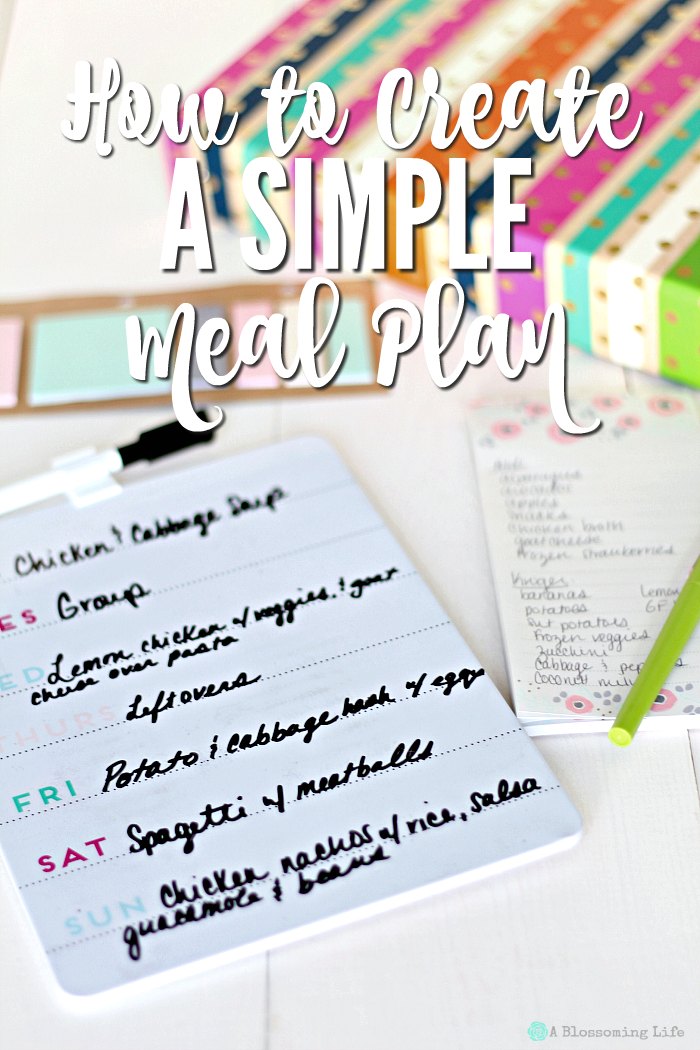 How to Create
A SIMPLE
Meal Plan
Chicken & Cabbage Soup
ES Group
ED Lemon chicken w/ veggies, & goat
cheese over pasta
THURS Leftovers
FRI Potato & cabbage hash w/ eggs
SAT Spagetti w/ meatballs
SUN Chicken nachos w/ rice, salsa
guacamole & beans
Aldi
apples
snacks
chicken broth
goat cheese
frozen strawberries
Kroger
bananas Lemon
potatoes GF
sweet potatoes
Frozen veggies
zucchini
Cabbage &
Coconut milk
A Blossoming Life